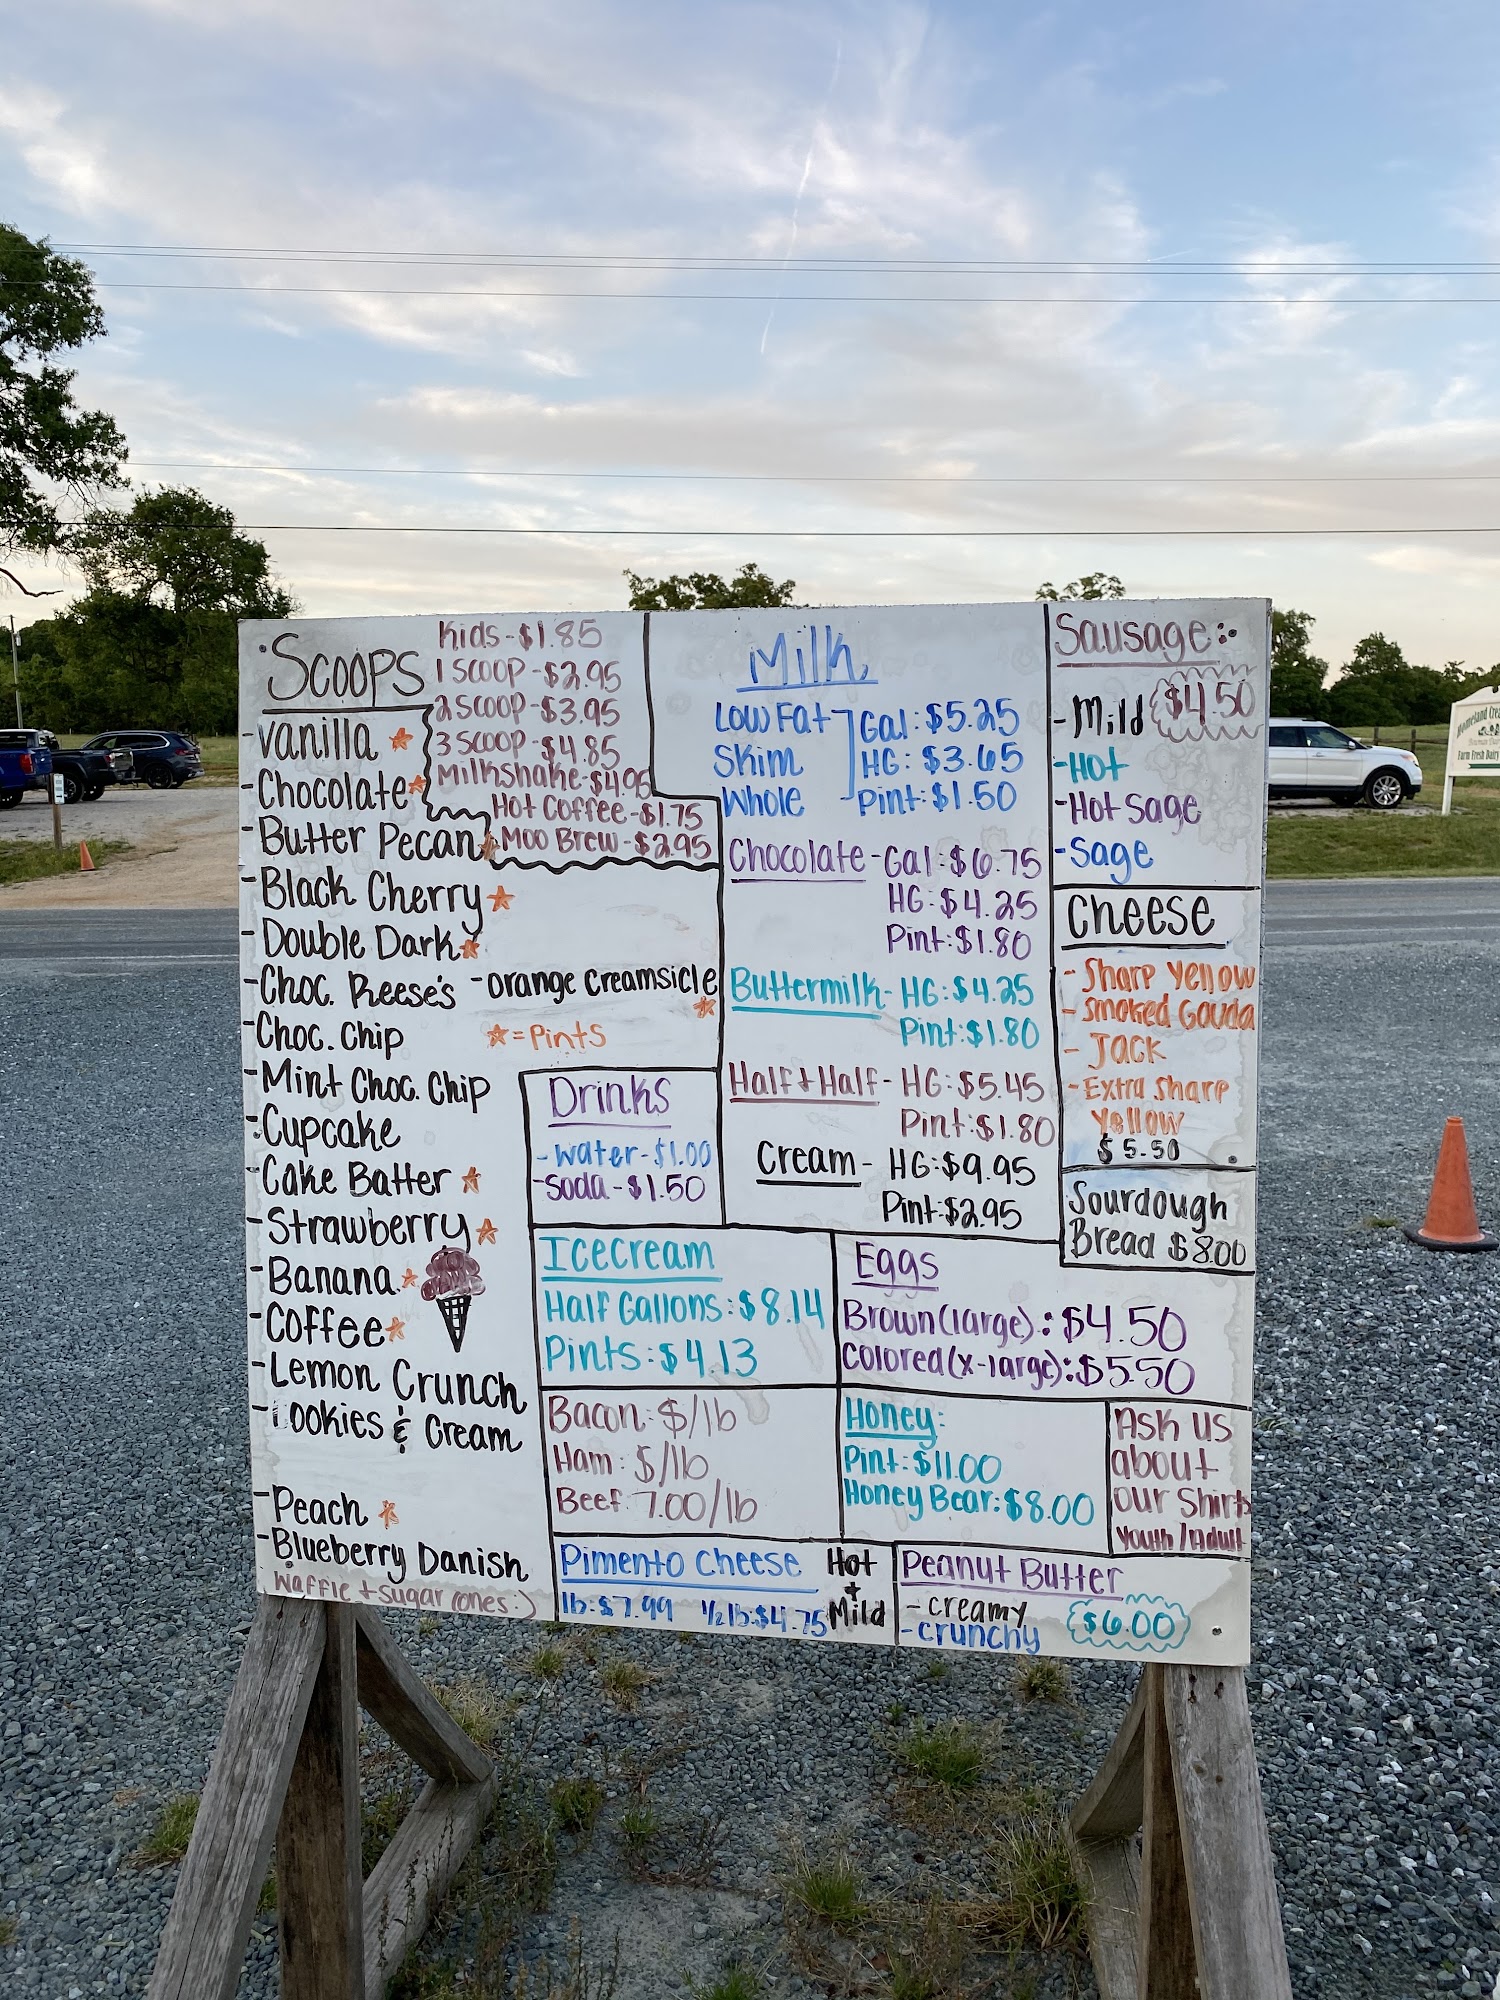 Scoops
Kids-$1.85
1 Scoop-$2.95
2 Scoop-$3.95
3 Scoop-$4.85
Milkshake-$4.95
Hot Coffee-$1.75
Moo Brew-$2.95
-Vanilla
-Chocolate
-Butter Pecan
-Black Cherry
-Double Dark
-Choc. Reese's
-Orange Creamsicle
-Choc. Chip
=Pints
-Mint Choc. Chip
-Cupcake
-Cake Batter
-Strawberry
-Banana
-Coffee
-Lemon Crunch
-ookies & Cream
-Peach
-Blueberry Danish
Waffle + sugar cones :)
Drinks
-Water-$1.00
-Soda-$1.50
Milk
Low Fat
Skim
Whole
Gal: $5.25
HG: $3.65
Pint: $1.50
Chocolate-Gal: $6.75
HG-$4.25
Pint: $1.80
Buttermilk-HG: $4.25
Pint: $1.80
Half + Half-HG: $5.45
Pint: $1.80
Cream-HG: $9.95
Pint: $2.95
Sausage:
$4.50
-Mild
-Hot
-Hot Sage
-Sage
Cheese
-Sharp Yellow
-Smoked Gouda
-Jack
-Extra Sharp
Yellow
$5.50
Sourdough
Bread $8.00
Icecream
Half Gallons: $8.14
Pints: $4.13
Eggs
Brown(large): $4.50
Colored(x-large): $5.50
Bacon: $/lb
Ham: $/lb
Beef: 7.00/lb
Honey:
Pint: $11.00
Honey Bear: $8.00
Ask us
about
our Shirts
Youth/Adult
Pimento Cheese
lb: $7.99 1/2 lb: $4.75
Hot
+
Mild
Peanut Butter
-creamy
-crunchy
$6.00
Farm Fresh Dairy